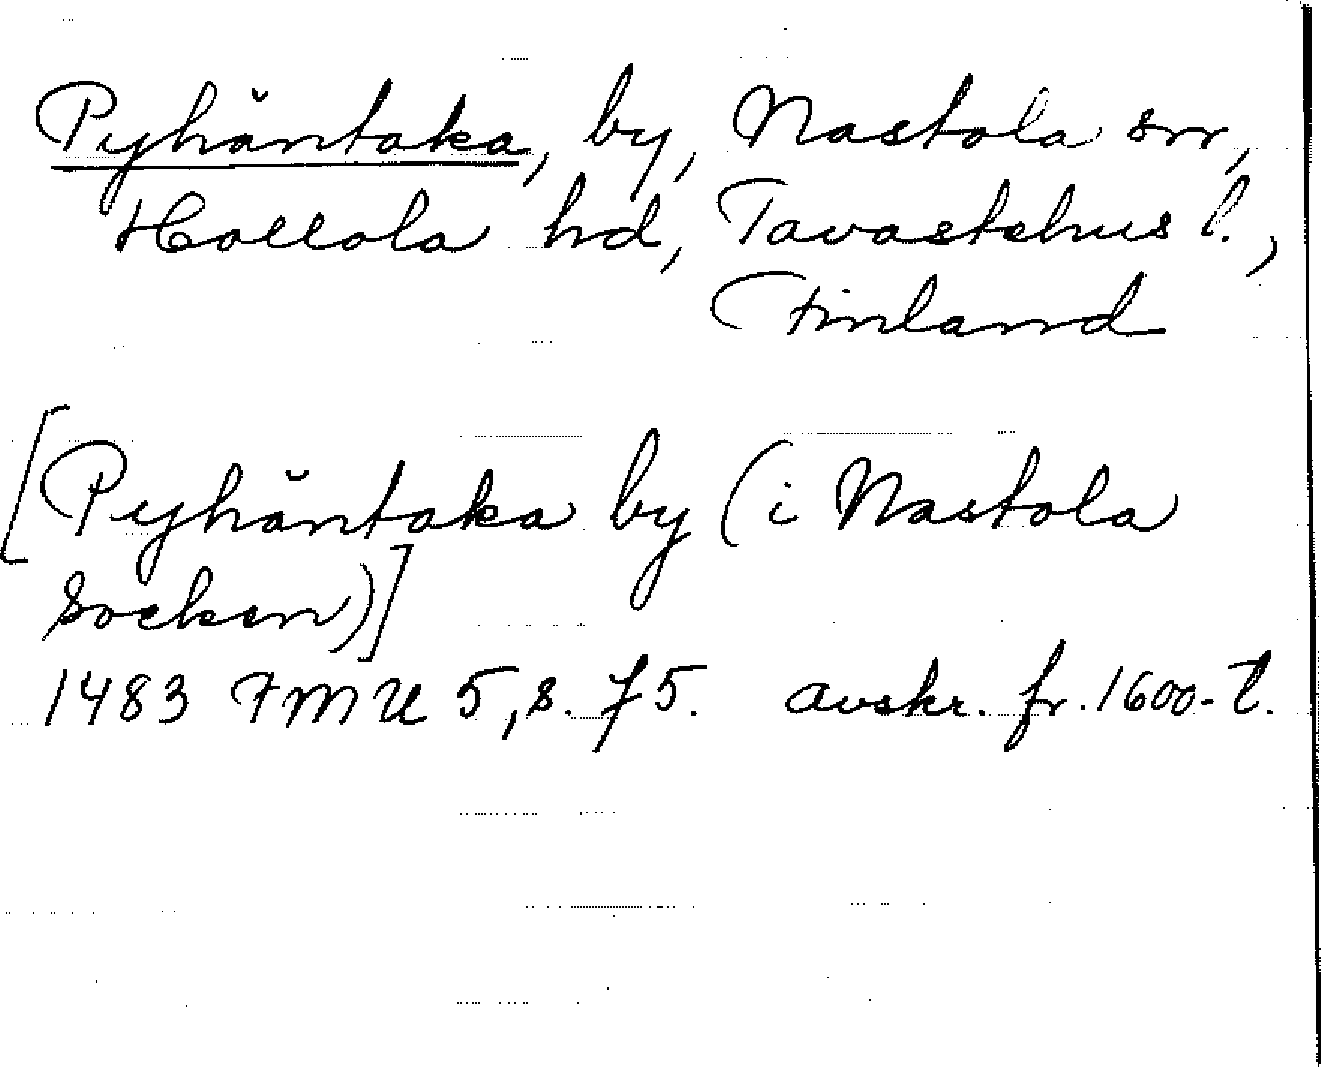 Pyhäntaka, by, Nastola sn,
Hollola hd, Tavastehus l.,
Finland
[Pyhäntaka by (i Nastola
Socken)]
1483 FMU 5, s. 75. avskr. fr. 1600-t.